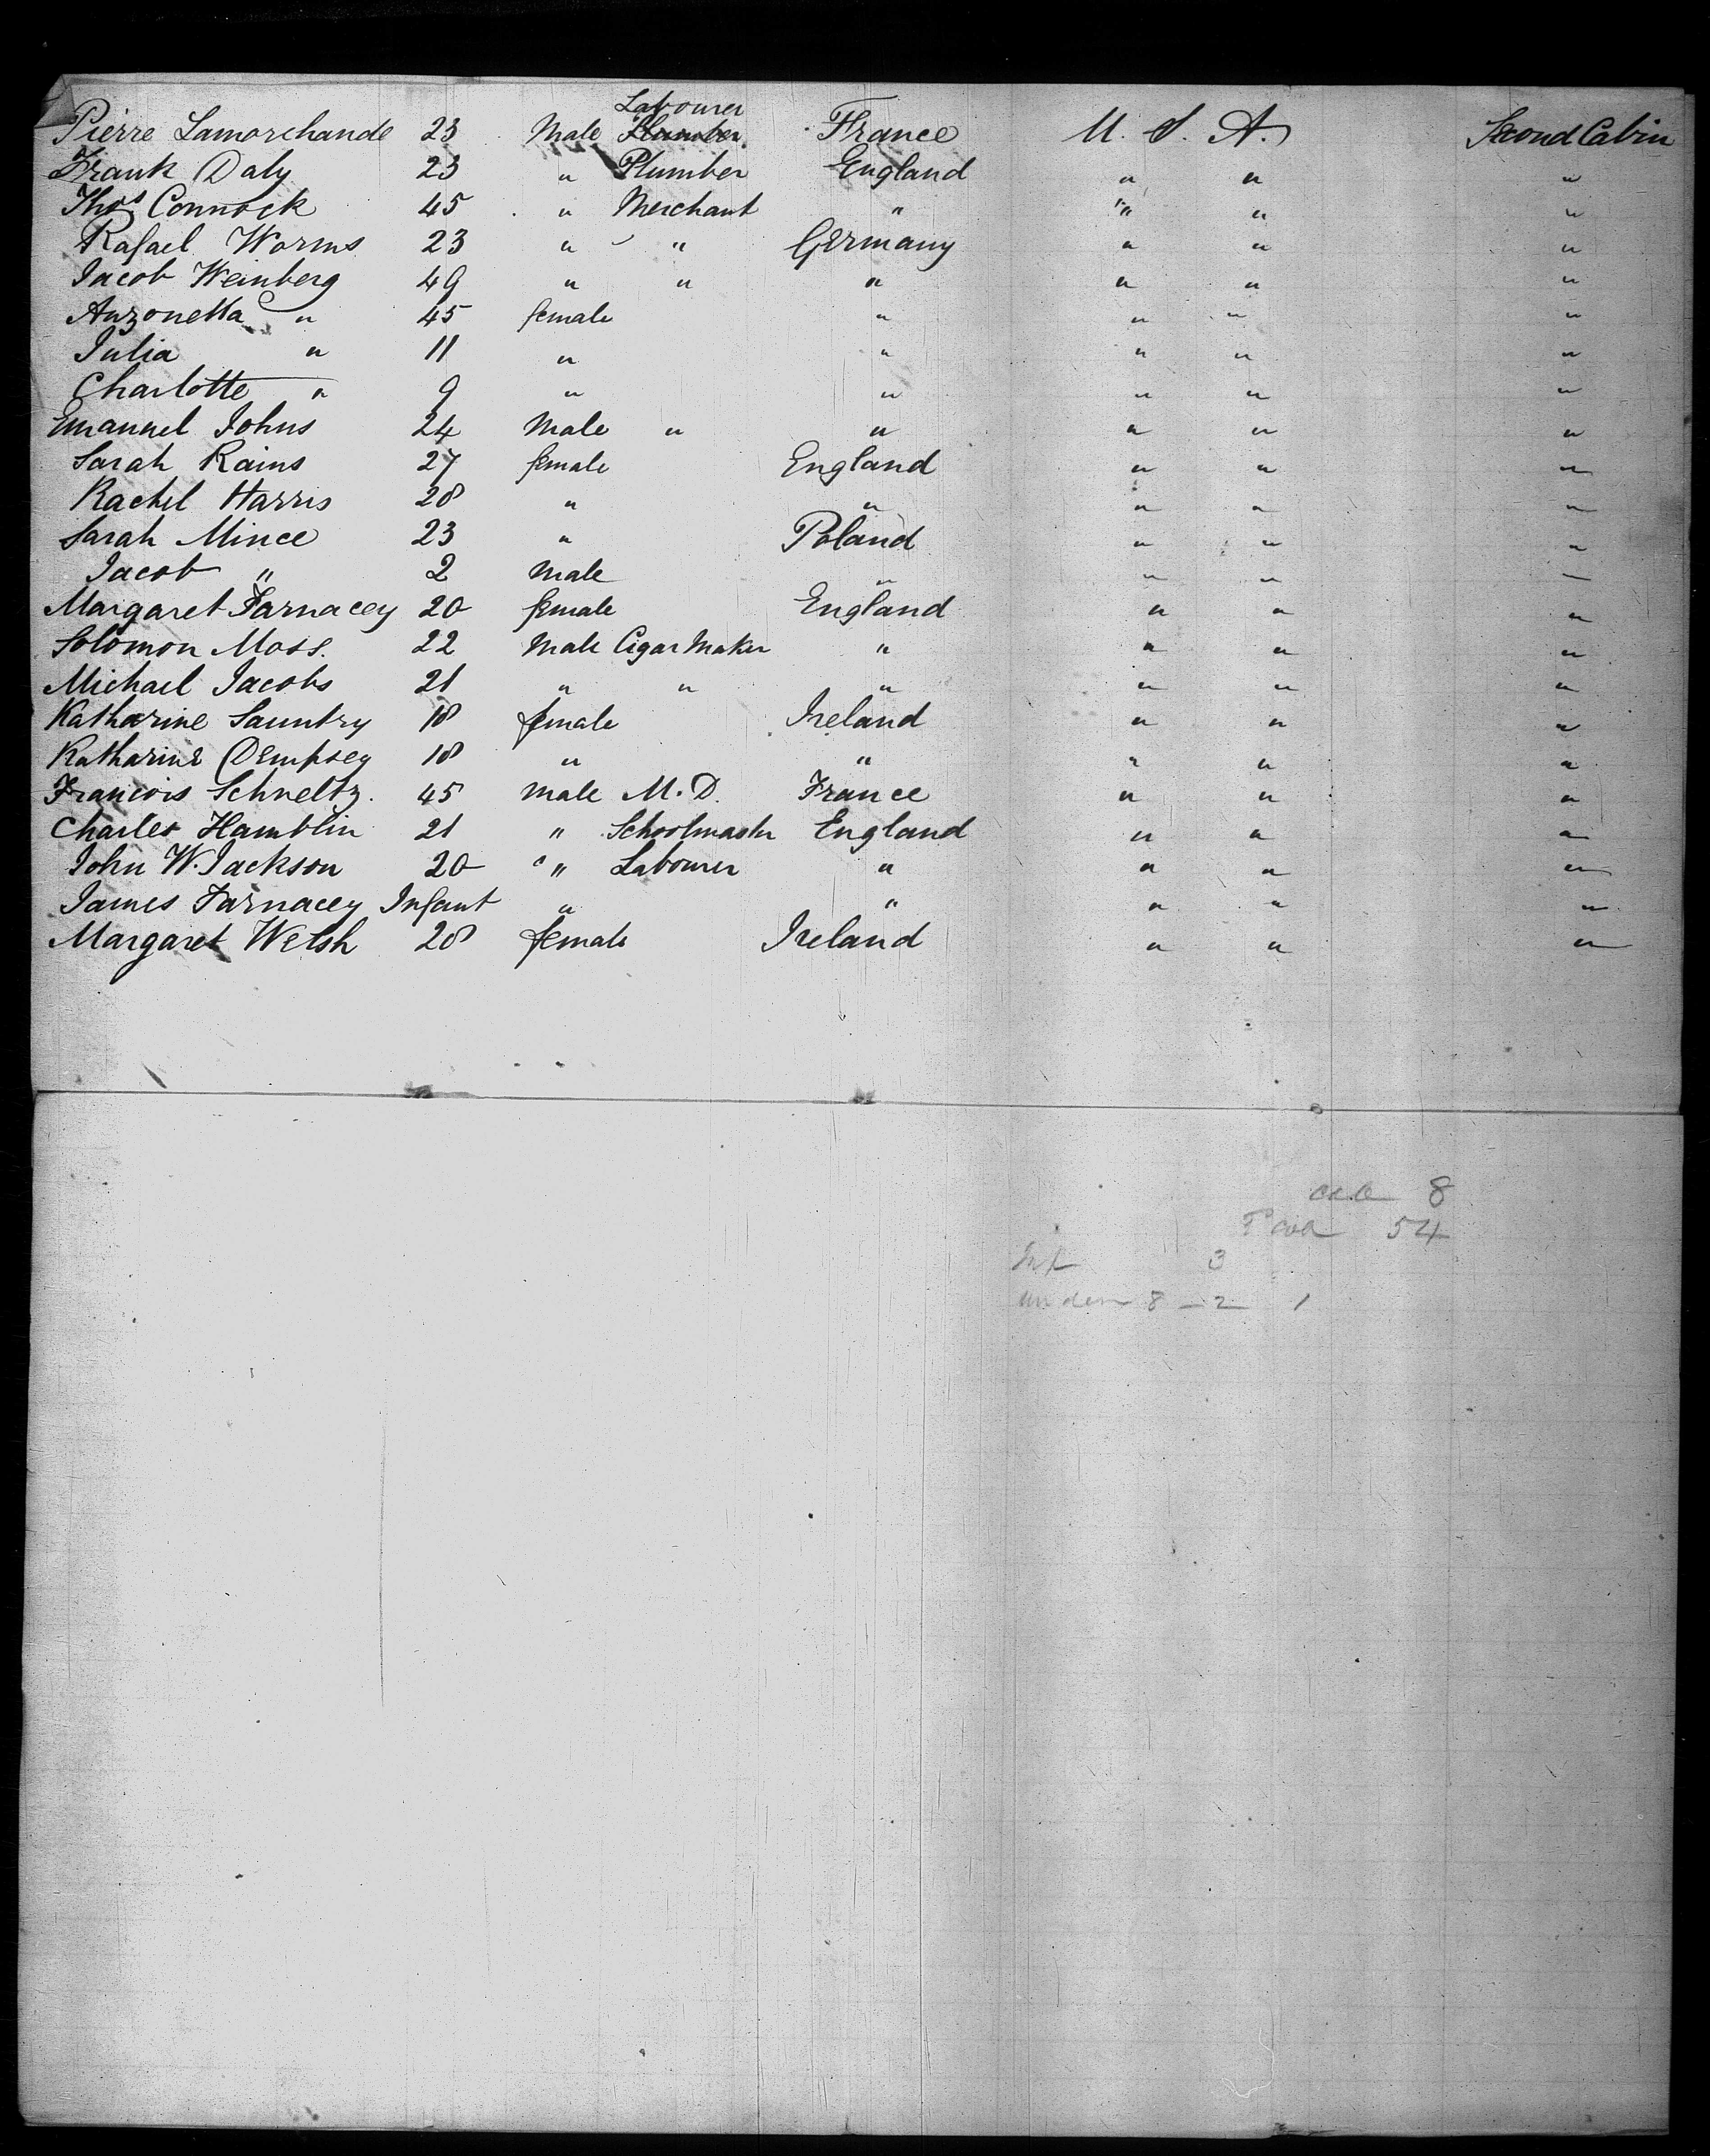 Labourer
Pierre Lamorchande 23 Male Plumber France U. S. A. Second Cabin
Frank Daly 23 " Plumber England " " "
Thos Connock 45 " Merchant " " " "
Rafael Worms 23 " " Germany " " "
Jacob Weinberg 49 " " " " " "
Anzonetta " 45 female " " " "
Julia " 11 " " " " "
Charlotte " 9 " " " " "
Emanuel Johns 24 Male " " " " "
Sarah Rains 27 female England " " "
Rachel Harris 28 " " " " "
Sarah Mince 23 " Poland " " "
Jacob " 2 Male " " " "
Margaret Farnacey 20 female England " " "
Solomon Moss. 22 Male Cigar Maker " " " "
Michael Jacobs 21 " " " " " "
Katharine Sauntry 18 female Ireland " " "
Katharine Dempsey 18 " " " " "
Francois Schneltz. 45 Male M. D. France " " "
Charles Hamblin 21 " Schoolmaster England " " "
John W. Jackson 20 " Labourer " " " "
James Farnacey Infant " " " " "
Margaret Welsh 28 female Ireland " " "
8
54
Inf 3
under 8 - 2 1